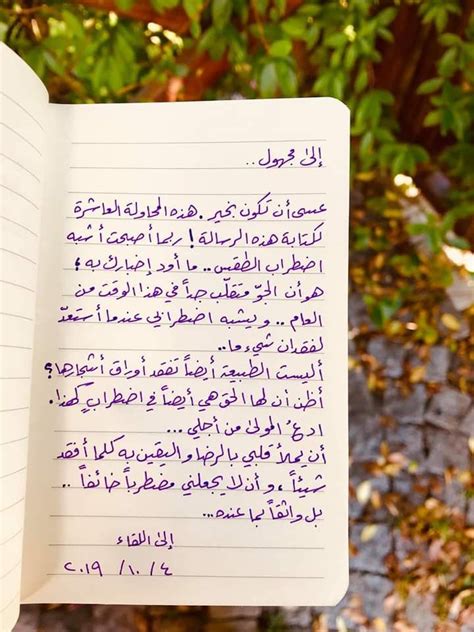 إلى مجهول ..
عسى أن تكون بخير . هذه المحاولة العاشرة
لكتابة هذه الرسالة ! ربما أصبحت أشبه
اضطراب الطقس .. ما أود إخبارك به ؛
هو أن الجوّ متقلّب جداً في هذا الوقت من
العام .. ويشبه اضطرابي عندما أستعدّ
لفقدان شيءٍ ما ..
أليست الطبيعة أيضاً تفقد أوراق أشجارها ؟
أظن أن لها الحق هي أيضاً في اضطرابٍ كهذا .
ادعُ المولى من أجلي ...
أن يملأ قلبي بالرضا واليقين به كلما أفقد
شيئاً ، وأن لا يجعلني مضطرباً خائفاً ..
بل واثقاً بما عنده ...
إلى اللقاء
٤ / ١٠ / ٢٠١٩